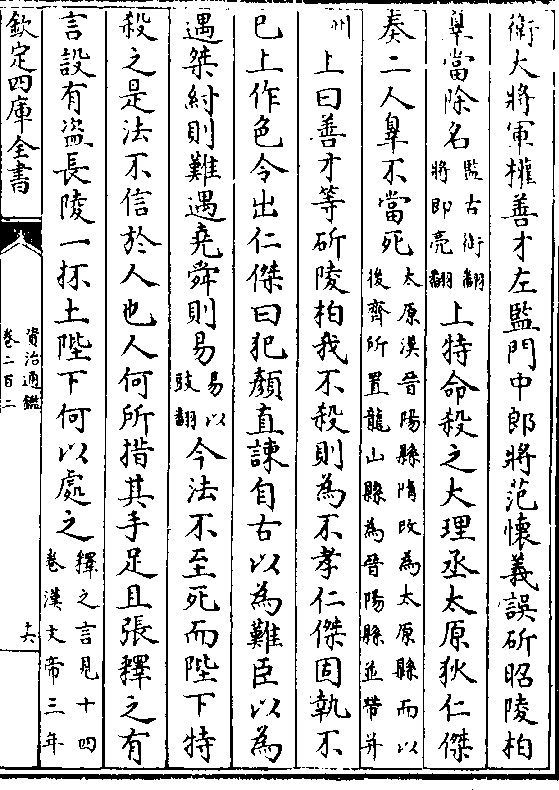 衛大將軍權善才左監門中郎將范懷義誤斫昭陵柏
辠當除名監古銜翻將即亮翻上特命殺之大理丞太原狄仁傑
奏二人辠不當死太原漢晉陽縣隋改為太原縣而以後齊所置龍山縣為晉陽縣並帶并
州上曰善才等斫陵柏我不殺則為不孝仁傑固執不
已上作色令出仁傑曰犯顏直諫自古以為難臣以為
遇桀紂則難遇堯舜則易易以豉翻今法不至死而陛下特
殺之是法不信於人也人何所措其手足且張釋之有
言設有盜長陵一抔土陛下何以處之釋之言見十四卷漢文帝三年
欽定四庫全書
資治通鑑
卷二百二
十六